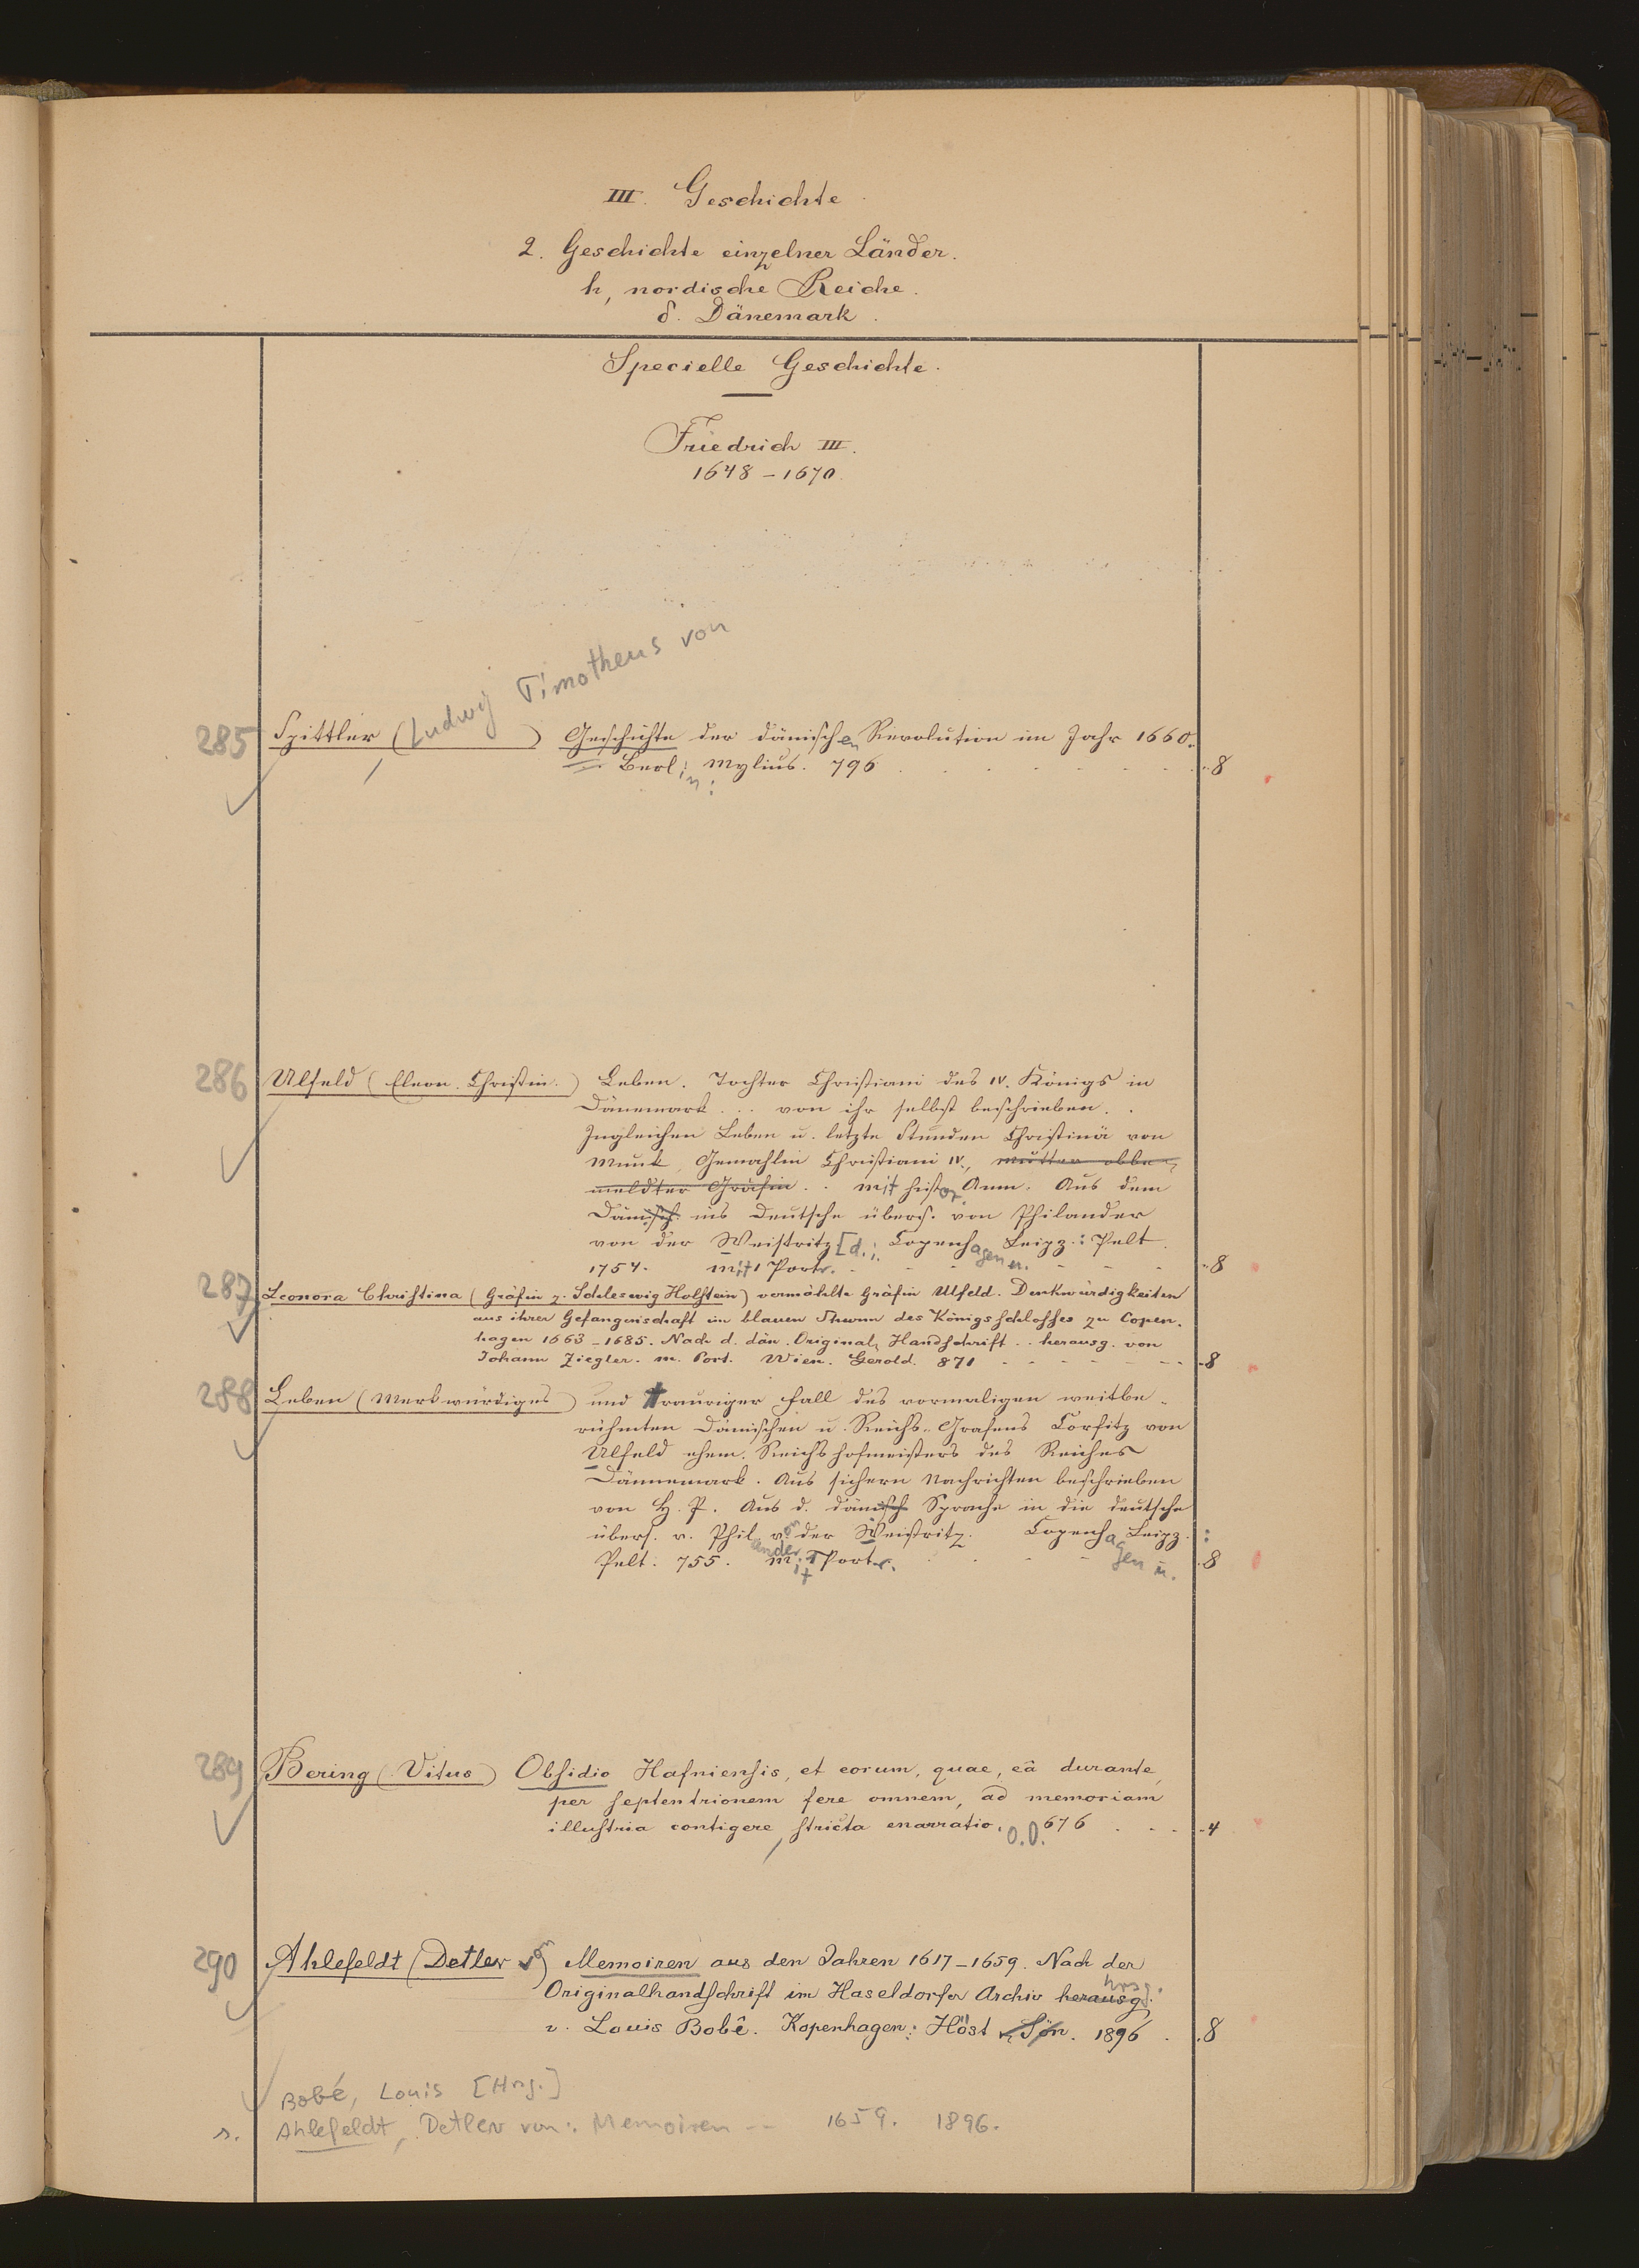 III. Geschichte
2. Geschichte einzelner Länder.
h, nordische Reiche.
δ. Dänemark.
Specielle Geschichte.
Friedrich III.
1648 – 1670.
Ludwig Timotheus von
285 Spittler ( ) Geschichte der dänischen Revolution im Jahr 1660.
Berlin: Mylius. 796 . . . . . . 8
286 Ulfeld (Eleon. Christin.) Leben. Tochter Christiani des IV. Königs in
Dänemark ... von ihr selbst beschrieben. .
Ingleichen Leben u. letzte Stunden Christinä von
Munk, Gemahlin Christiani IV., Mutter obbe-
meldter Gräfin .. mit histor. Anm. Aus dem
Dänisch. ins Deutsche übers. von Philander
von der Weistritz [d.i. Copenhagen u. Leipz.: Pelt.
1757. mit 1 Portr. - - - - - - 8
287 Leonora Christina (Gräfin z. Schleswig Holstein) vermählte Gräfin Ulfeld. Denkwürdigkeiten
aus ihrer Gefangenschaft im blauen Thurm des Königsschlosses zu Copen-
hagen 1663–1685. Nach d. dän. Original-Handschrift .. herausg. von
Johann Ziegler. m. Port. Wien. Gerold. 871 - - - - - - 8
288 Leben (Merkwürdiges) und trauriger Fall des vormaligen weitbe-
rühmten Dänischen u. Reichs-Grafens Corfitz von
Ulfeld ehem. Reichshofmeisters des Reiches
Dännemark. Aus sichern Nachrichten beschrieben
von H. P. Aus d. dänisch Sprache in die deutsche
übers. v. Philander von der Weistritz. Copenhagen u. Leipz.:
Pelt. 755. mit 1 Portr. . . - - 8
289 Bering (Vitus) Obsidio Hafniensis, et eorum, quae, eâ durante,
per septentrionem fere omnem, ad memoriam
illustria contigere, stricta enarratio. o.O. 676 . . . 4
290 Ahlefeldt (Detlev von) Memoiren aus den Jahren 1617–1659. Nach der
Originalhandschrift im Haseldorfer Archiv herausg. hrsg.
v. Louis Bobê. Kopenhagen: Höst & Sön. 1896 . . 8
Bobé, Louis [Hrsg.]
s. Ahlefeldt, Detlev von: Memoiren -- 1659. 1896.